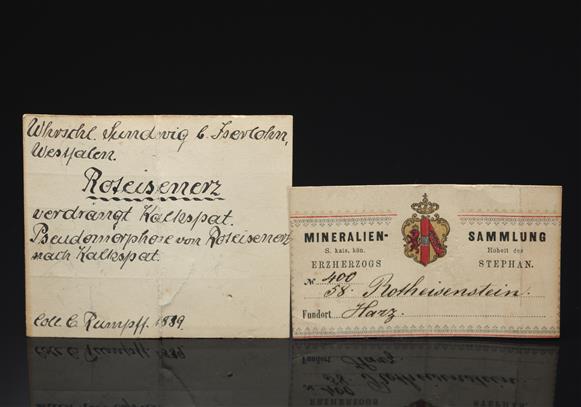 Whrschl. Sundwig b. Iserlohn,
Westfalen.
Roteisenerz
verdrängt Kalkspat.
Pseudomorphose von Roteisenerz
nach Kalkspat.
Coll. C. Rumpff. 1889.
MINERALIEN-SAMMLUNG
S. kais. kön. Hoheit des
ERZHERZOGS STEPHAN.
№ 400
58. Rotheisenstein.
Fundort Harz.